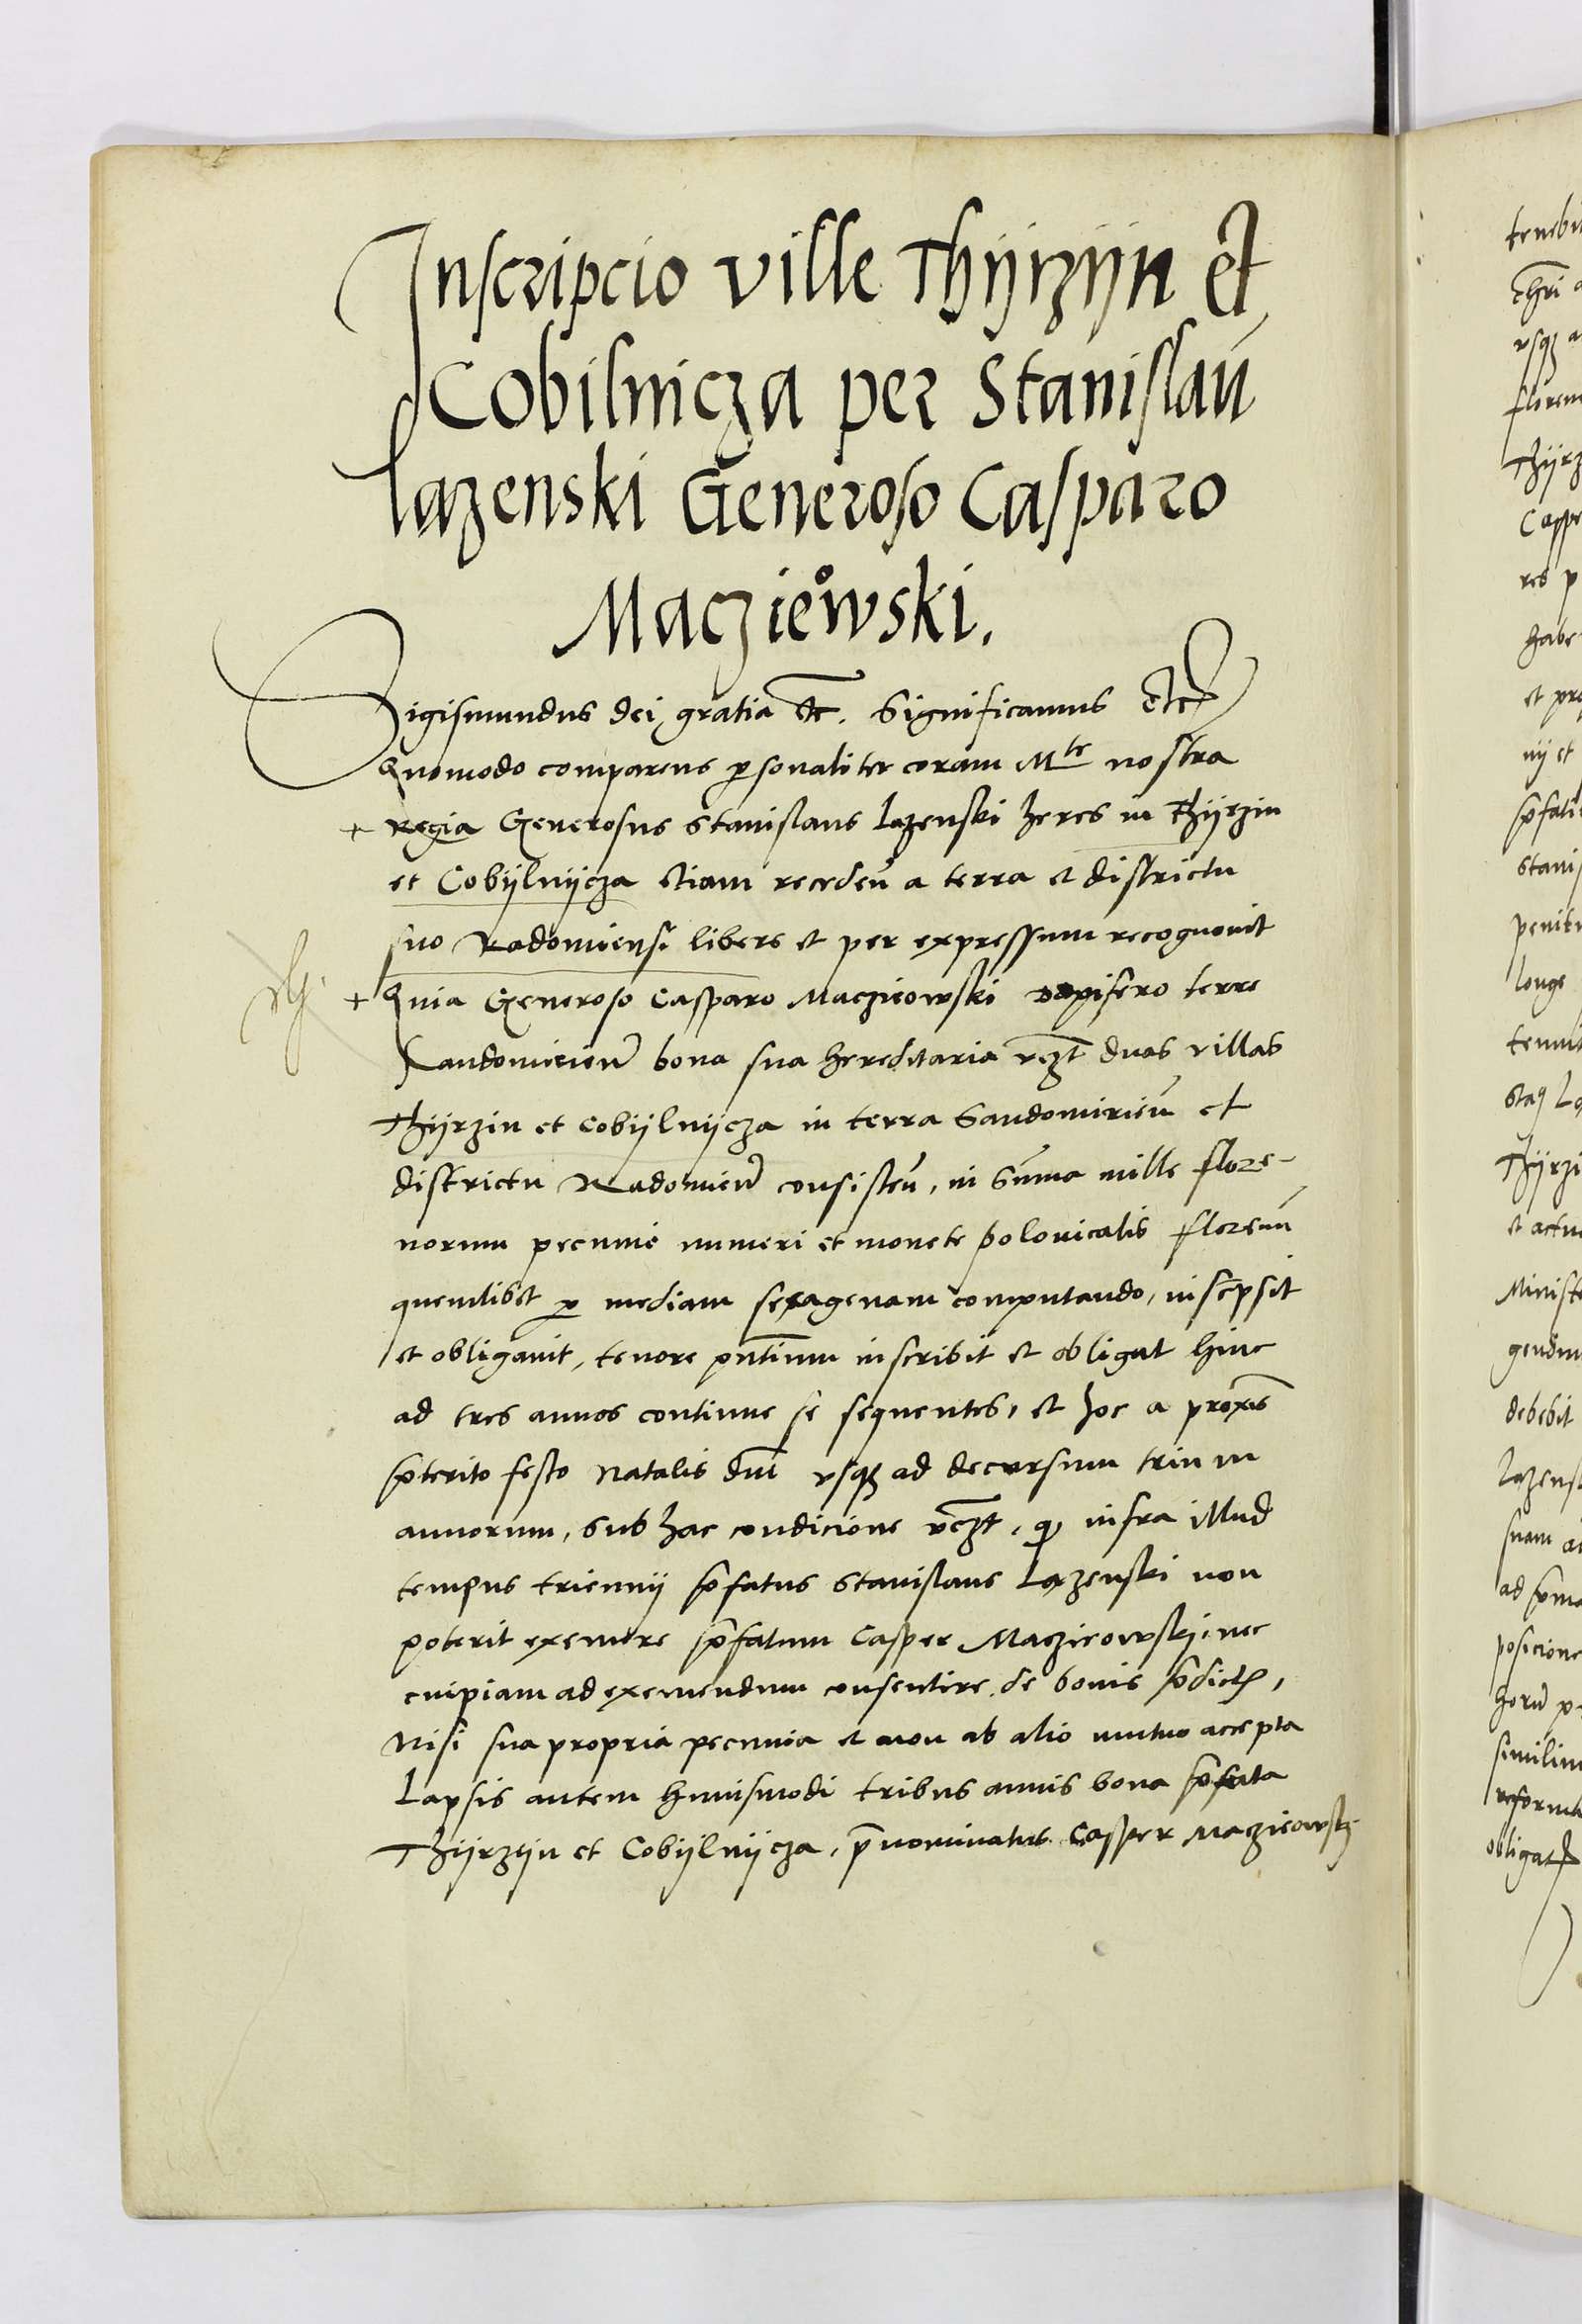 Inscripcio ville Thijrzijn et
Cobilnicza per Stanislaū
Lazenski Generoso Casparo
Macziewski.
Sigismundus dei gratia etc. Significamus etc
Quomodo comparens personaliter coram Mte nostra
+ regia Generosus Stanislaus Lazenski heres in Thijrzin
et Cobijlnijcza etiam recedeñ a terra et districtu
suo Radomiensi libere et per expressum recognouit
+ Quia Generoso Casparo Macziewski dapifero terre
Sandomirieñ bona sua hereditaria vczt duas villas
Thijrzin et Cobijlnijcza in terra Sandomirieñ et
districtu Radomieñ consisteñ, in Summa mille flore-
norum pecunie numeri et monete polonicalis florenū
quemlibet per mediam sexagenam computando, inscpsit
et obligauit, tenore pñtium inscribit et obligat hinc
ad tres annos continue se sequentes, et hoc a proxē
p̄terito festo Natalis dn̄i vsqz ad decursum trium
annorum, Sub hac condicione vczt, qͥ infra illud
tempus triennij p̄fatus Stanislaus Lazenski non
poterit exemere p̄fatum Casper Macziewskj, nec
cuipiam ad exemendum consentire de bonis p̄dictis,
Nisi sua propria pecunia et non ab alio mutuo accepta
Lapsis autem huiusmodi tribus annis bona p̄fata
Thijrzijn et Cobijlnijcza, p̄nominatus Casper Macziewskj
tenebi
vsqz a
floren
Thijrz
Cappe
res p
habe
et pro
nij et
p̄fati
Stanis
penit
longe
tenuit
Thijrzi
et actu
Ministe
gendum
debebit
Lazens
suam ad
ad p̄ma
posicione
horū p
similim
reforma
obligat